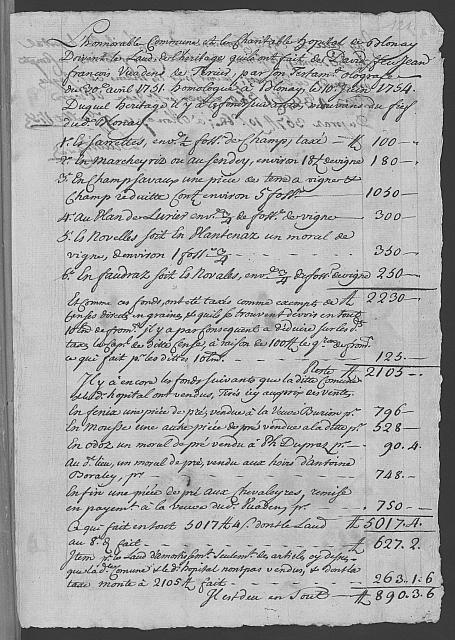 L'honorable Commune et le Charitable hopital de Blonay
Doivent le Laud de l'heritage qu'ils ont fait de David feu Jean
François Vuadens de Tercier, par son Testamt olografe
du 20e avril 1751. homologué à Blonay, le 10e Juin 1754.
Duquel heritage il y a les fonds suivants mouvans du fief
dud. Blonay.
1º. es Sarrettes, env. 1/2 foss. de Champ, taxé — ₶ 100 —
2º. En Marcheyriz ou au fendey, environ 18 t. de vigne 180 —
3º. En Champ Savaux une pièce de terre à vigne &
Champ reduitte Cont. environ 5 foss. 1050 —
4. Au Plan de env. 3/4 de foss. de vigne — 300 —
5º. es Novelles soit En Plantenaz un moral de
vigne, d'environ 1 foss. 3/4 350 —
6º. En faudraz soit es Novales, env. 3/4 de foss. de vigne 250 —
₶ 2230 —
Et comme ces fonds, ont été taxés comme exempts de
Censes directes en graines, & qu'ils se trouvent devoir en tout
10 de from. il y a par consequent à deduire sur les d.
taxes, le Cap. de ditte Cense, à raison de 100 ₶ le q. de from.
ce qui fait p. les dittes 125 —
Reste ₶ 2105 —
Il y a encore les fonds suivants que la ditte Commune
& le d. hopital ont vendus,
En fenix une pièce de pré, vendue à la Veuve Burion p. 796 —
En Mousse une autre pièce de pré vendue à la ditte p. 528 —
En odoz un moral de pré vendu à Dupraz p. — 90. 4.
Au d. lieu, un moral de pré, vendu aux hoirs d'antoine
Boraley, p. 748. —
Enfin une pièce de pré aux Chevaleyres, remise
en payement à la veuve du p. — 750 —
Ce qui fait en tout 5017 ₶ 4 s. dont le Laud ₶ 5017. 4.
au 8e. fait — ₶ 627. 2.
Item p. le Laud seulement des articles cy dessus
que la d. Comune & le d. hopital n'ont pas vendus, & dont la
taxe monte à 2105 ₶ fait — 263. 1. 6
Il est deu en Tout — ₶ 890. 3. 6